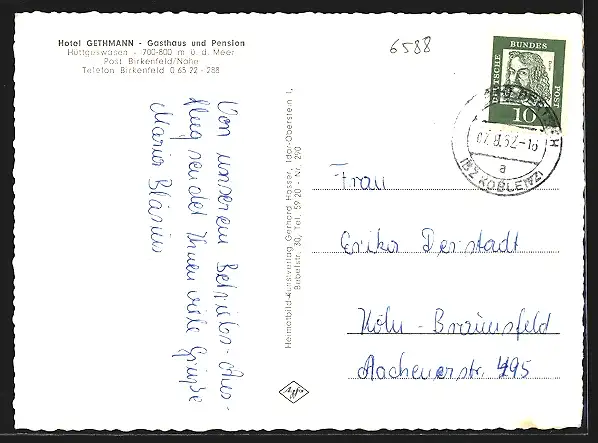 Hotel GETHMANN - Gasthaus und Pension
Hüttgeswasen - 700-800 m ü. d. Meer
Post Birkenfeld/Nahe
Telefon Birkenfeld 0 65 22 - 288
6588
DEUTSCHE BUNDES POST
10
07.8.62-18
a
(BZ KOBLENZ)
Von unserem Betriebs-Aus-
flug sendet Ihnen viele Grüße
Maria Bläsius
Heimatbild-Kunstverlag Gerhard Hosser, Idar-Oberstein 1,
Birbelstr. 30, Tel. 59 20 - Nr. 290
Frau
Erika Derstadt
Köln - Braunsfeld
Aachenerstr. 495
Agfa